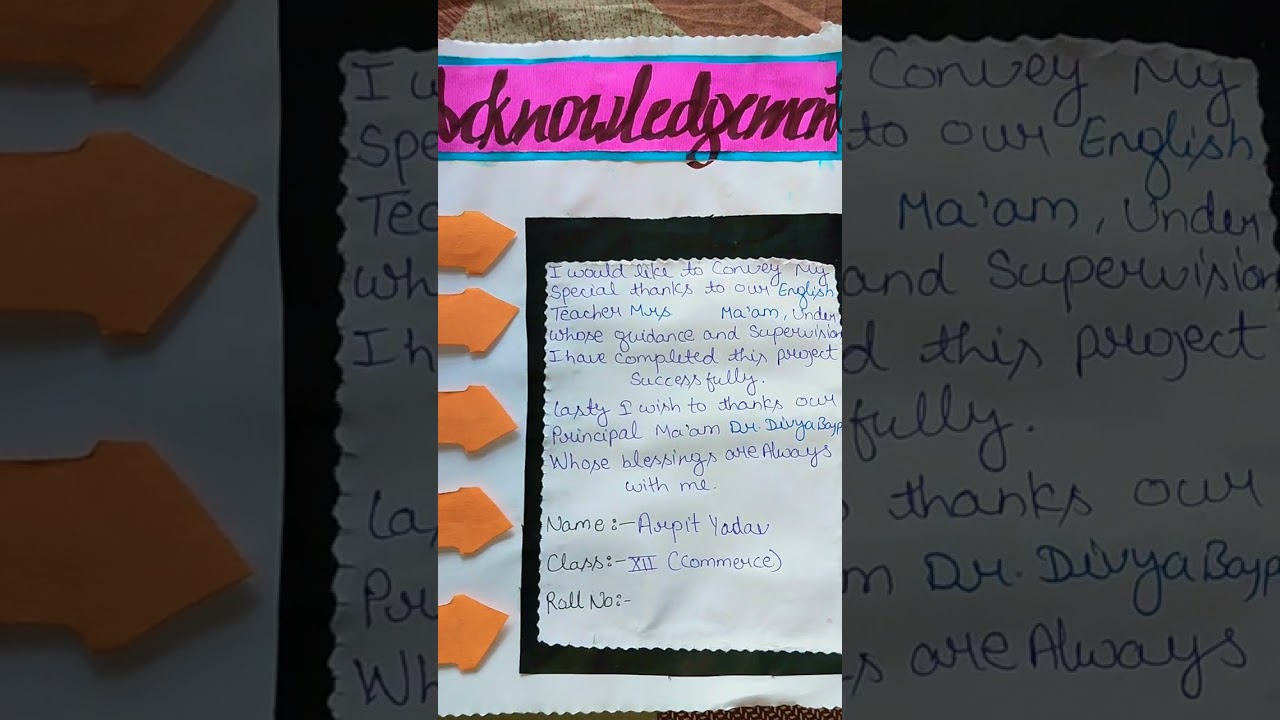 Acknowledgement
I would like to Convey My
Special thanks to our English
Teacher Mrs Ma'am, Under
whose guidance and Supervision
I have completed this project
Successfully.
Lasty I wish to thanks our
Principal Ma'am Dr. Divya Bajp
Whose blessings are Always
with me.
Name:- Arpit Yadav
Class:- XII (Commerce)
Roll No:-